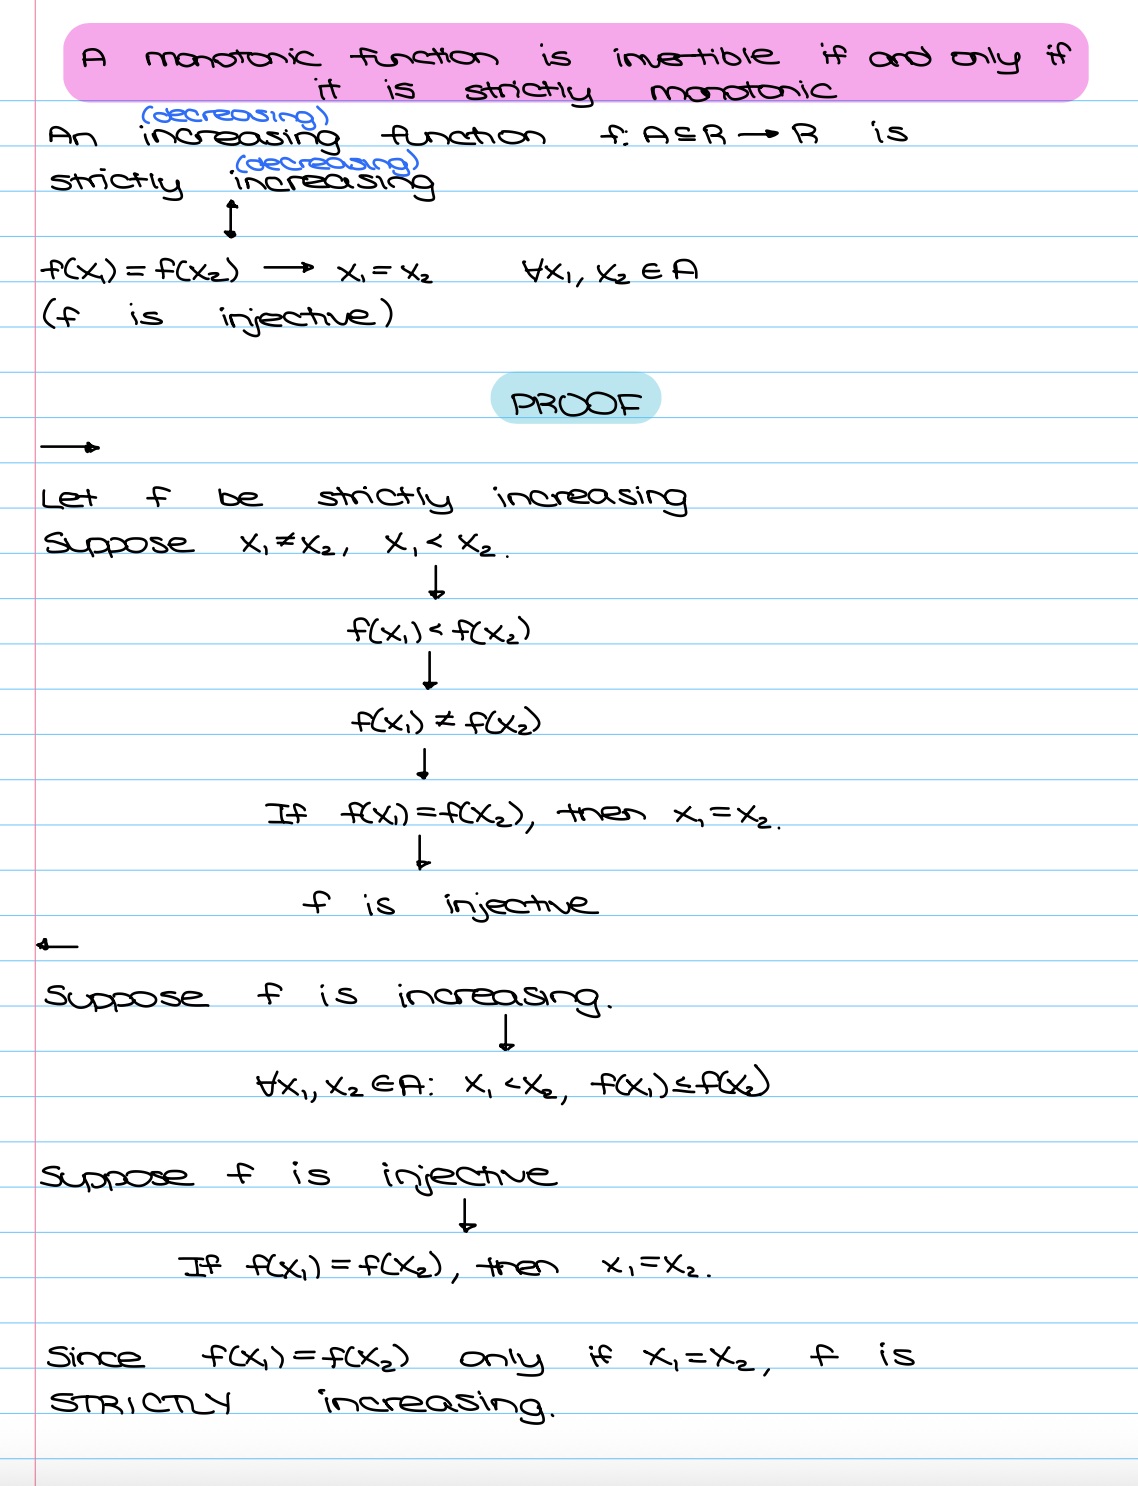 A monotonic function is invertible if and only if
it is strictly monotonic
(decreasing)
An increasing function f: A⊆R → R is
(decreasing)
strictly increasing
↕
f(x₁) = f(x₂) → x₁ = x₂ ∀x₁, x₂ ∈ A
(f is injective)
PROOF
→
Let f be strictly increasing
Suppose x₁ ≠ x₂, x₁ < x₂.
↓
f(x₁) < f(x₂)
↓
f(x₁) ≠ f(x₂)
↓
If f(x₁) = f(x₂), then x₁ = x₂.
↓
f is injective
←
Suppose f is increasing.
↓
∀x₁, x₂ ∈ A: x₁ < x₂, f(x₁) ≤ f(x₂)
Suppose f is injective
↓
If f(x₁) = f(x₂), then x₁ = x₂.
Since f(x₁) = f(x₂) only if x₁ = x₂, f is
STRICTLY increasing.